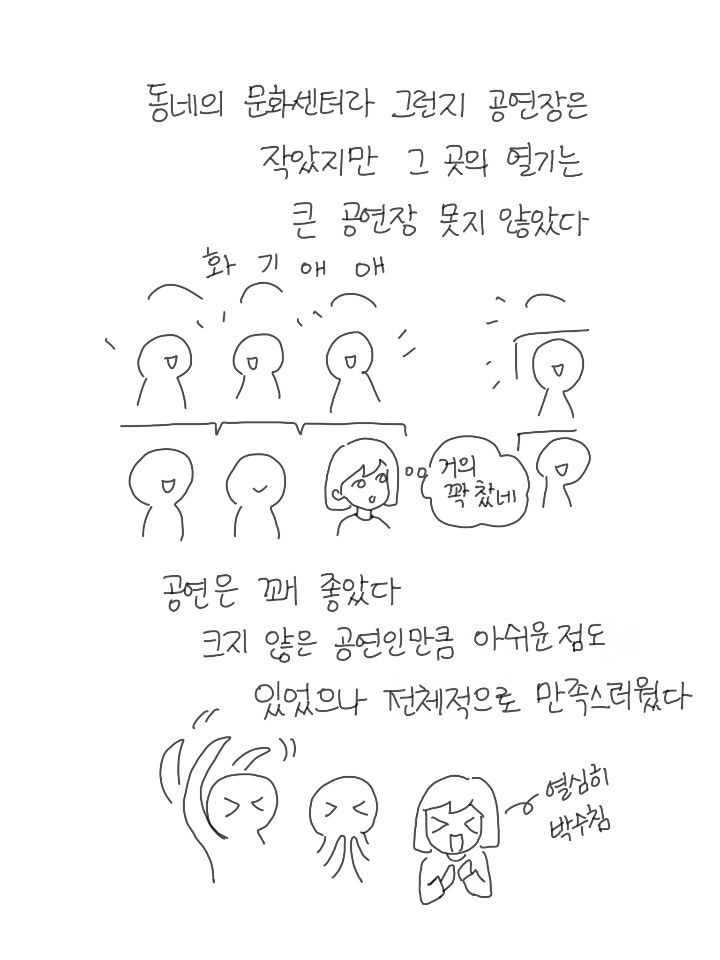 동네의 문화센터라 그런지 공연장은
작았지만 그 곳의 열기는
큰 공연장 못지 않았다
화 기 애 애
거의
꽉 찼네
공연은 꽤 좋았다
크지 않은 공연인만큼 아쉬운점도
있었으나 전체적으로 만족스러웠다
열심히
박수침